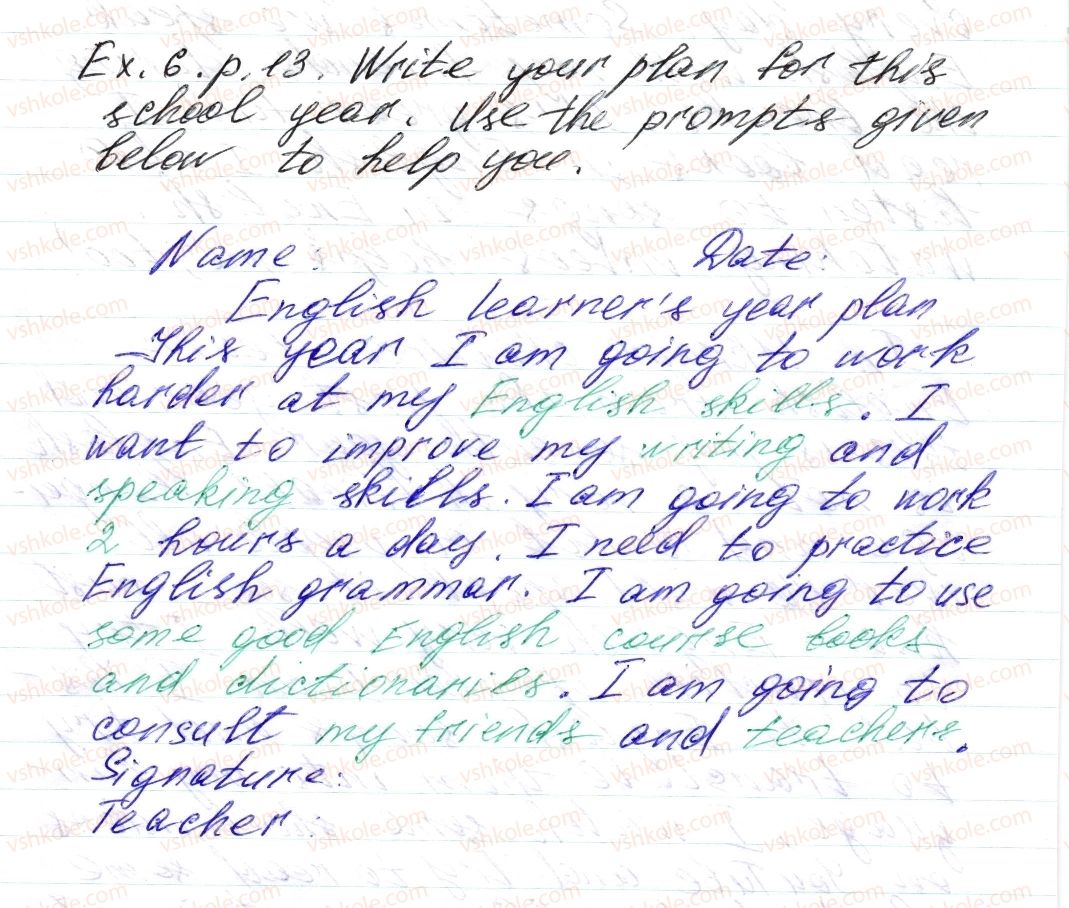 Ex. 6. p. 13. Write your plan for this
school year. Use the prompts given
below to help you.
Name: Date:
English learner's year plan
This year I am going to work
harder at my English skills. I
want to improve my writing and
speaking skills. I am going to work
2 hours a day. I need to practice
English grammar. I am going to use
some good English course books
and dictionaries. I am going to
consult my friends and teachers.
Signature:
Teacher: